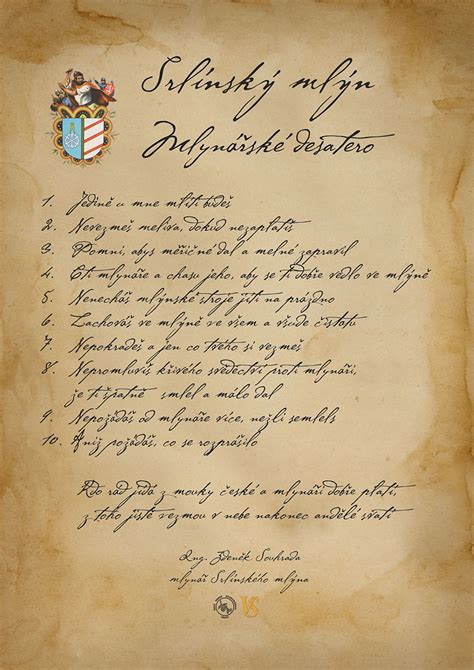 Srlínský mlýn
Mlynářské desatero
1. Jedině u mne mlíti budeš
2. Nevezmeš meliva, dokud nezaplatíš
3. Pomni, abys měřičné dal a melné zapravil
4. Cti mlynáře a chasu jeho, aby se ti dobře vedlo ve mlýně
5. Nenecháš mlýnské stroje jíti na prázdno
6. Zachováš ve mlýně ve všem a všude čistotu
7. Nepokradeš a jen co tvého si vezmeš
8. Nepromluvíš křivého svědectví proti mlynáři,
že ti špatně smlel a málo dal
9. Nepožádáš od mlynáře více, nežli semlels
10. Aniž požádáš, co se rozprášilo
Kdo rád jídá z mouky české a mlynáři dobře platí,
z toho jistě vezmou v nebe nakonec andělé svatí
Ing. Zdeněk Souhrada
mlynář Srlínského mlýna